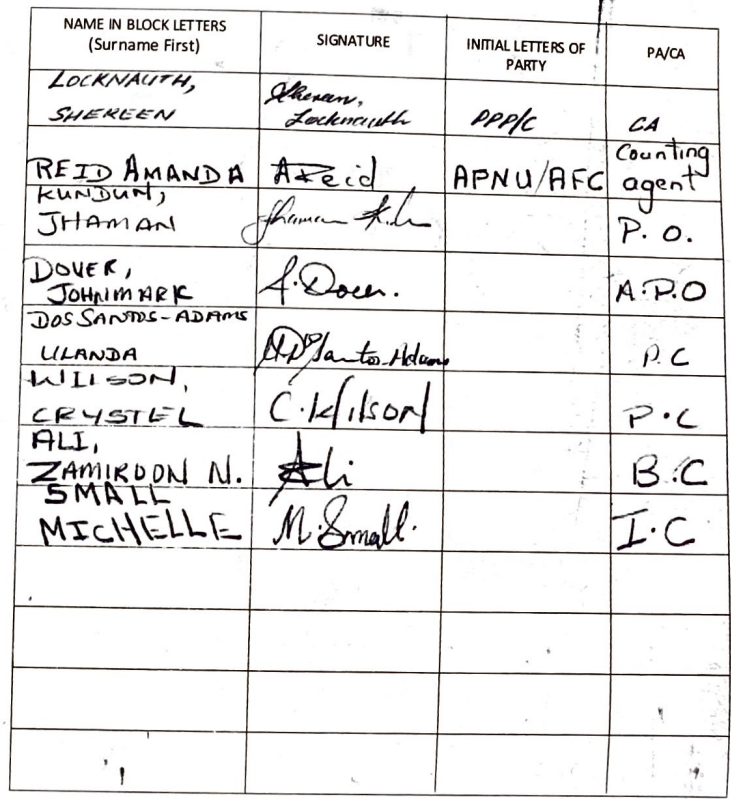 NAME IN BLOCK LETTERS
(Surname First)
SIGNATURE
INITIAL LETTERS OF
PARTY
PA/CA
LOCKNAUTH,
SHEREEN
Shereen,
Locknauth
PPP/C
CA
REID AMANDA
AReid
APNU/AFC
Counting
agent
KUNDUN,
JHAMAN
Jhaman
P. O.
DOVER,
JOHNMARK
J. Dover.
A.P.O
DOS SANTOS-ADAMS
ULANDA
Santos-Adams
P.C
WILSON,
CRYSTEL
C. Wilson
P.C
ALI,
ZAMIROON N.
Ali
B.C
SMALL
MICHELLE
M. Small.
I.C